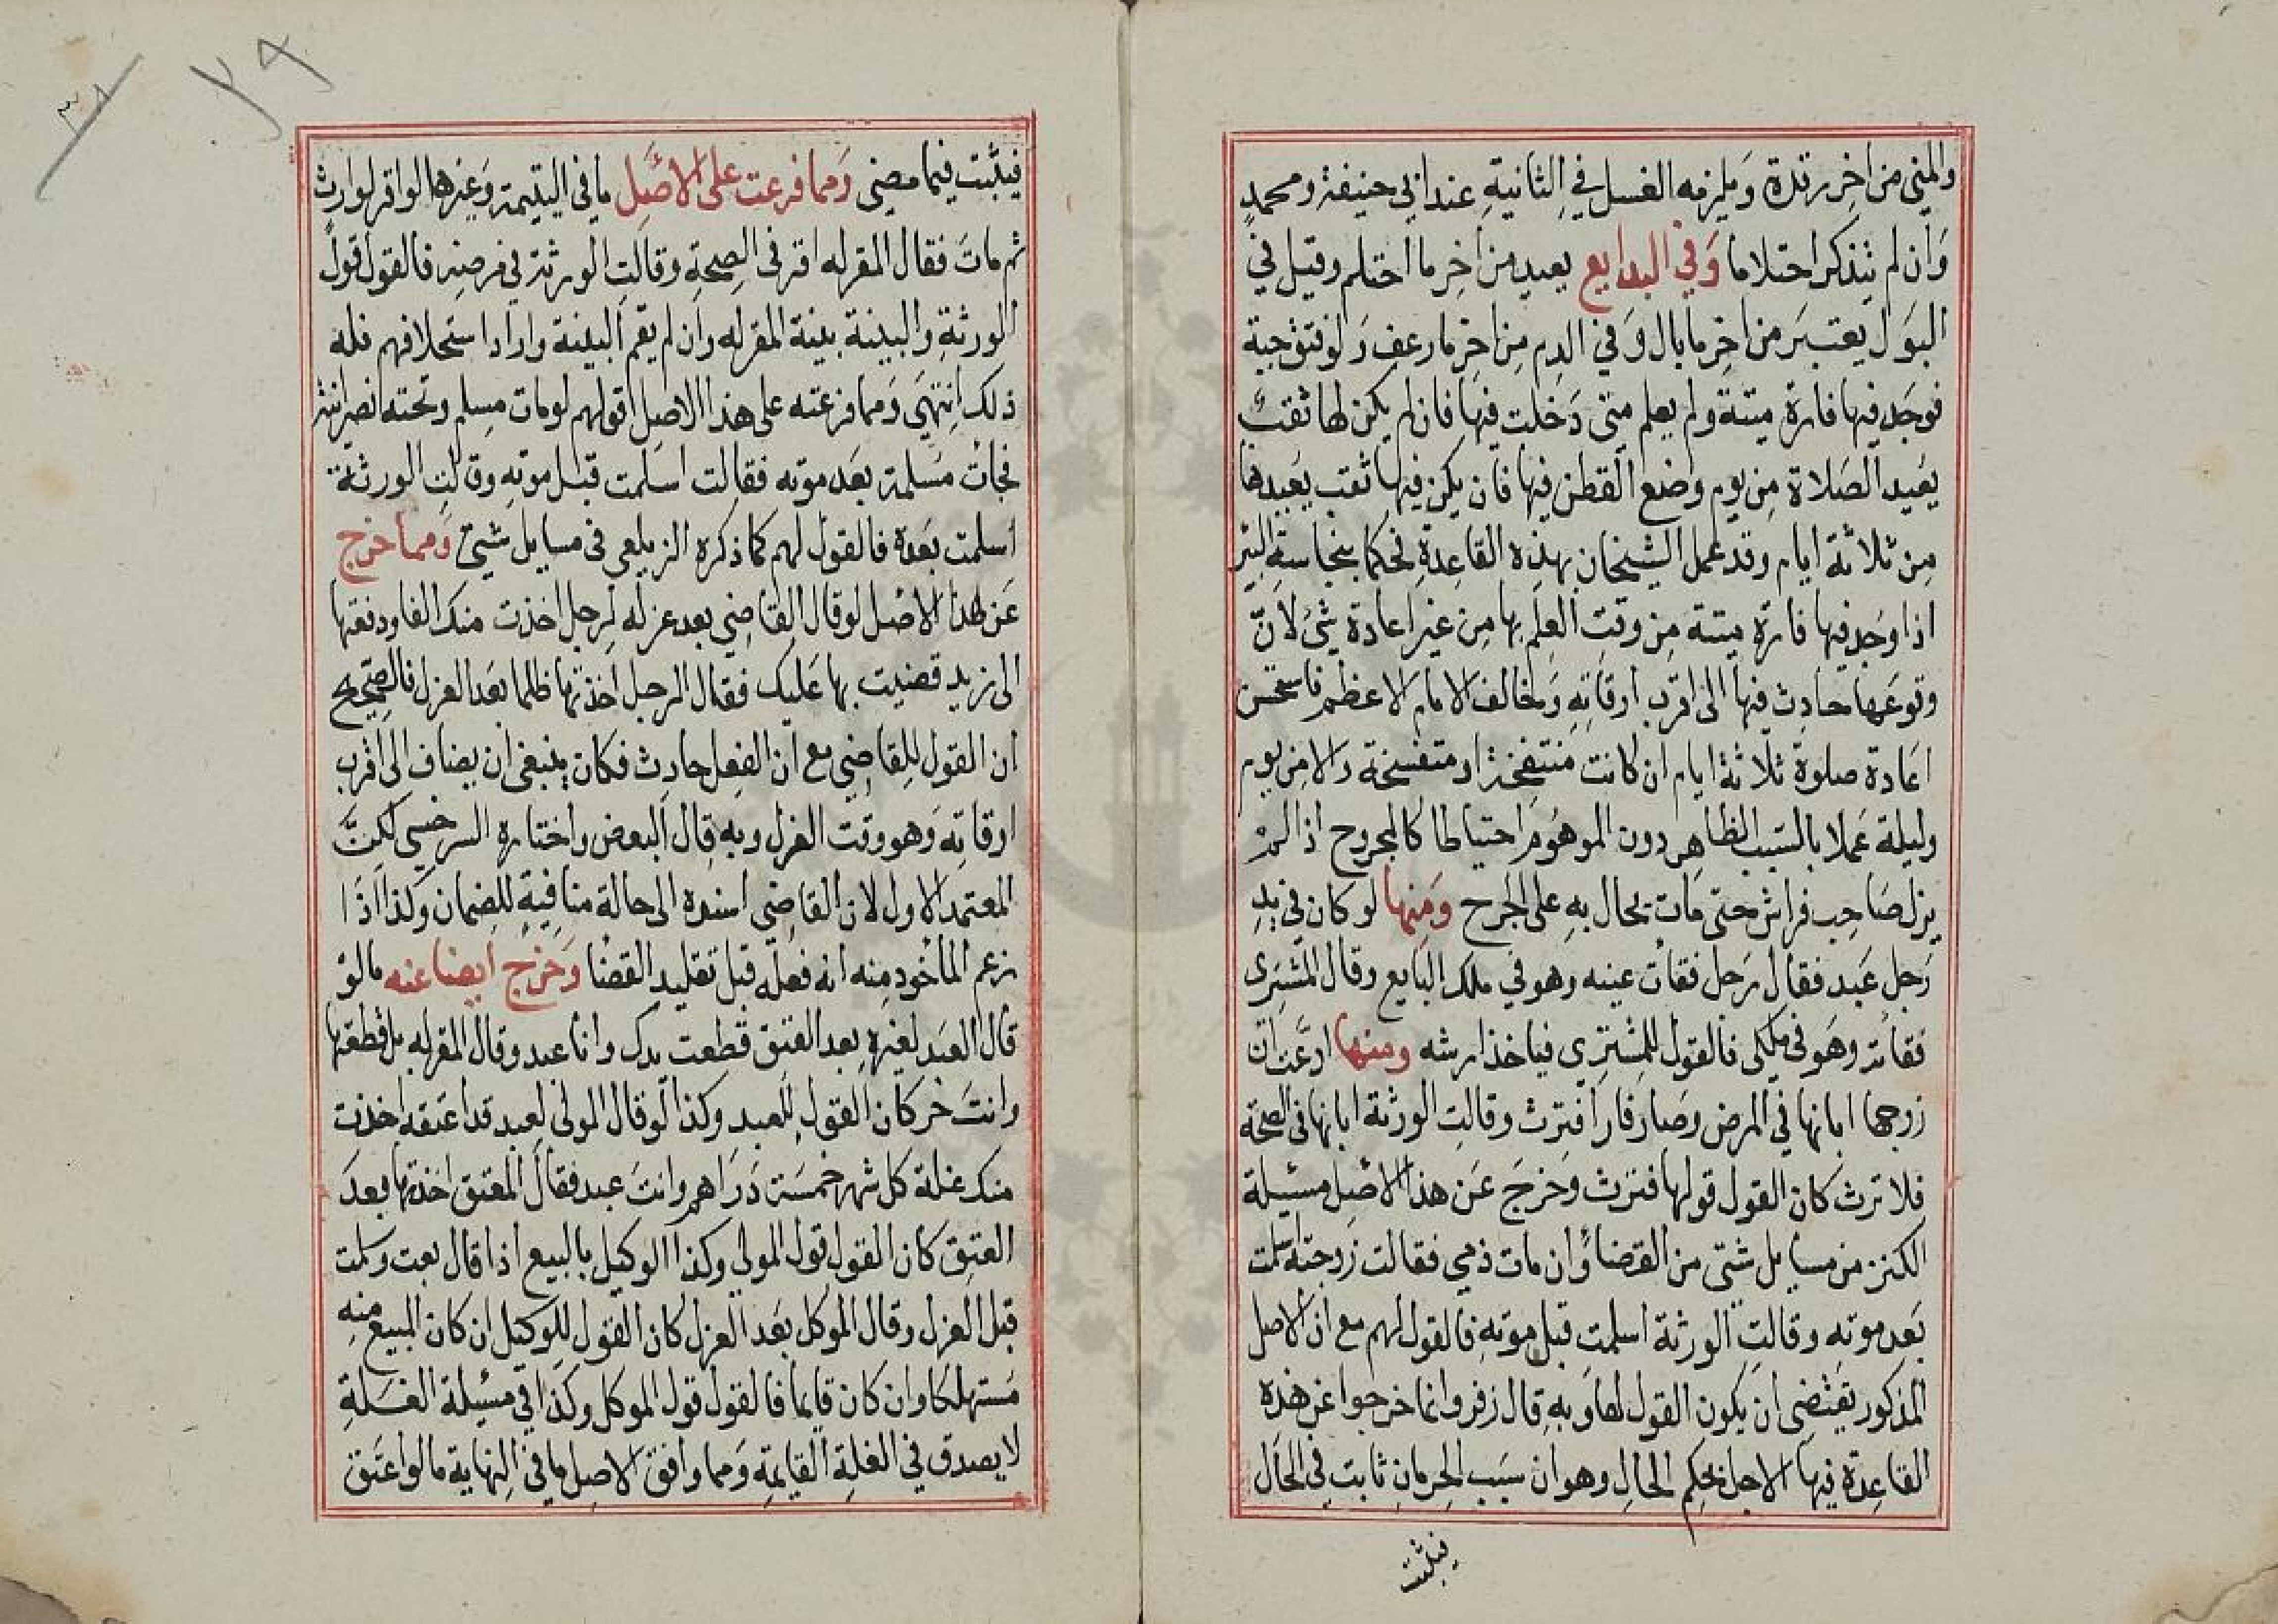 والمني من اخر رقدة ويلزمه الغسل في الثانية عند ابي حنيفة ومحمد
وان لم يتذكر احتلاما وفي البدايع يعيد من اخر ما احتلم وقيل في
البول يعتبر من اخر ما بال وفي الدم من اخر ما رعف ولو فتق جبة
فوجد فيها فارة ميتة ولم يعلم متى دخلت فيها فان لم يكن لها ثقب
يعيد الصلاة من يوم وضع القطن فيها فان يكن فيها ثقب يعيدها
من ثلاثة ايام وقد عمل الشيخان بهذه القاعدة فحكما بنجاسة البئر
اذا وجد فيها فارة ميتة من وقت العلم بها من غير اعادة شئ لان
وقوعها حادث فيها الى اقرب اوقاته وخالف الامام الاعظم فاستحسن
اعادة صلوة ثلاثة ايام ان كانت منتفخة او متفسخة والا من يوم
وليلة عملا بالسبب الظاهر دون الموهوم احتياطا كالمجروح اذا لم
يزل صاحب فراش حتى مات يحال به على الجرح ومنها لو كان في يد
رجل عبد فقال رجل فقأت عينه وهو في ملك البايع وقال المشترى
فقاته وهو في ملكى فالقول للمشتري فياخذ ارشه ومنها ادعت ان
زوجها ابانها في المرض وصار فارا فترث وقالت الورثة ابانها في الصحة
فلا ترث كان القول قولها فترث وخرج عن هذا الاصل مسئيلة
الكنز من مسايل شتى من القضاء وان مات ذمي فقالت زوجته اسلمت
بعد موته وقالت الورثة اسلمت قبل موته فالقول لهم مع ان الاصل
المذكور يقتضى ان يكون القول لها وبه قال زفر وانما خرجوا عن هذه
القاعدة فيها لاجل تحكيم الحال وهو ان سبب الحرمان ثابت في الحال
فيثبت
٢٩
٣٨
فيثبت فيما مضى ومما فرعت على الاصل ما في اليتيمة وغيرها لو اقر لوارث
ثم مات فقال المقر له اقر في الصحة وقالت الورثة في مرضه فالقول قول
الورثة والبينة بينة المقر له وان لم يقم البينة واراد استحلافهم فله
ذلك انتهى ومما فرعته على هذا الاصل قولهم لو مات مسلم وتحته نصرانية
فجات مسلمة بعد موته فقالت اسلمت قبل موته وقالت الورثة
اسلمت بعده فالقول لهم كما ذكره الزيلعي في مسايل شتى ومما خرج
عن هذا الاصل لو قال القاضي بعد عزله لرجل اخذت منك الفا ودفعتها
الى زيد قضيت بها عليك فقال الرجل اخذتها ظلما بعد العزل فالصحيح
ان القول للقاضي مع ان الفعل حادث فكان ينبغي ان يضاف الى اقرب
اوقاته وهو وقت العزل وبه قال البعض واختاره السرخسي لكن
المعتمد الاول لان القاضي اسنده الى حالة منافية للضمان وكذا اذا
زعم المأخوذ منه انه فعله قبل تقليد القضا وخرج ايضا عنه ما لو
قال العبد لغيره بعد العتق قطعت يدك وانا عبد وقال المقر له بل قطعتها
وانت حر كان القول للعبد وكذا لو قال المولى لعبد قد اعتقه اخذت
منك غلة كل شهر خمسة دراهم وانت عبد فقال المعتق اخذتها بعد
العتق كان القول قول المولي وكذا الوكيل بالبيع اذا قال بعت وسلمت
قبل العزل وقال الموكل بعد العزل كان القول للوكيل ان كان المبيع منه
مستهلكا وان كان قايما فالقول قول الموكل وكذا في مسئيلة الغلة
لا يصدق في الغلة القايمة ومما وافق الاصل ما في النهاية ما لو اعتق